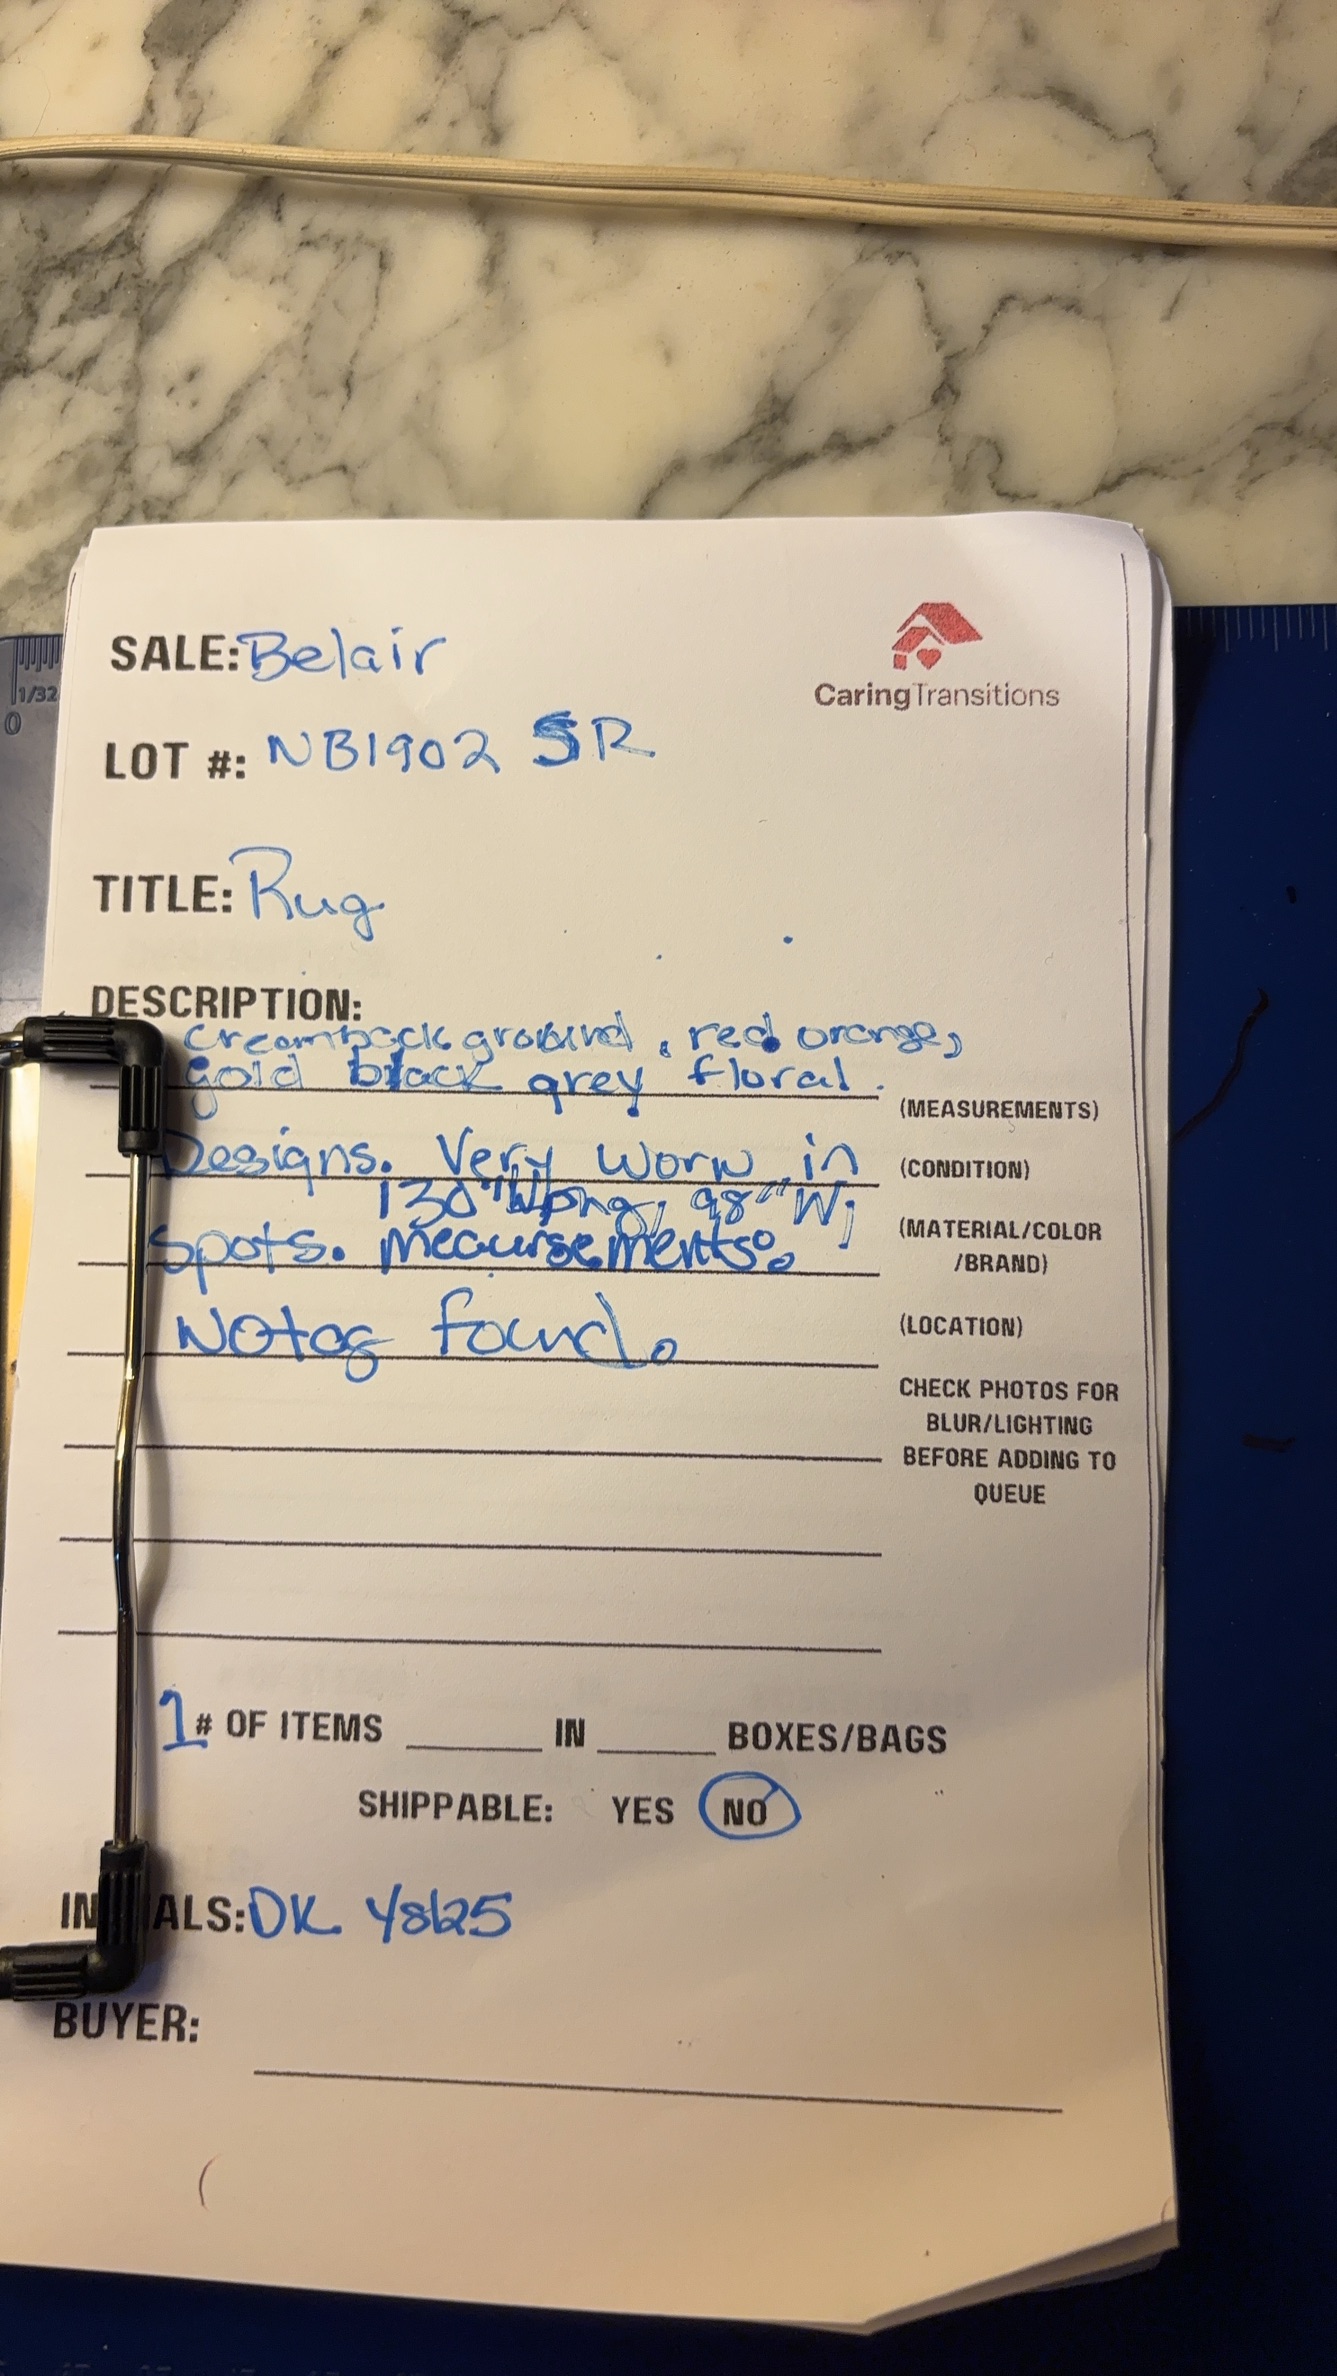 SALE: Belair
CaringTransitions
LOT #: NB1902 SR
TITLE: Rug
DESCRIPTION:
Cream background, red orange,
gold black grey floral.
(MEASUREMENTS)
Designs. Very worn in
(CONDITION)
130" long, 98" W;
spots. Mecursements:
(MATERIAL/COLOR
/BRAND)
No tag found.
(LOCATION)
CHECK PHOTOS FOR
BLUR/LIGHTING
BEFORE ADDING TO
QUEUE
1 # OF ITEMS ______ IN ______ BOXES/BAGS
SHIPPABLE: YES NO
IN ALS: DK
BUYER:
1/32
0